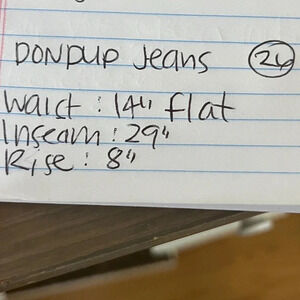 DONDUP Jeans 26
Waist : 14" flat
Inseam : 29"
Rise : 8"